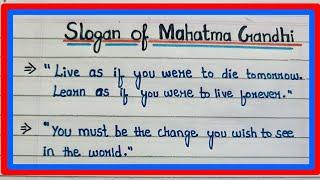 Slogan of Mahatma Gandhi
⇒ "Live as if you were to die tomorrow.
Learn as if you were to live forever."
⇒ "You must be the change you wish to see
in the world."